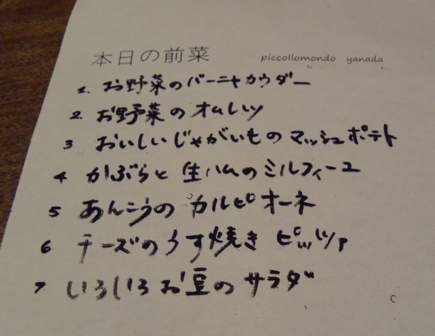 本日の前菜 piccollomondo yanada
1. お野菜のバーニャカウダー
2 お野菜のオムレツ
3 おいしいじゃがいものマッシュポテト
4 かぶらと生ハムのミルフィーユ
5 あんこうのカルピオーネ
6 チーズのうす焼きピッツァ
7 いろいろお豆のサラダ